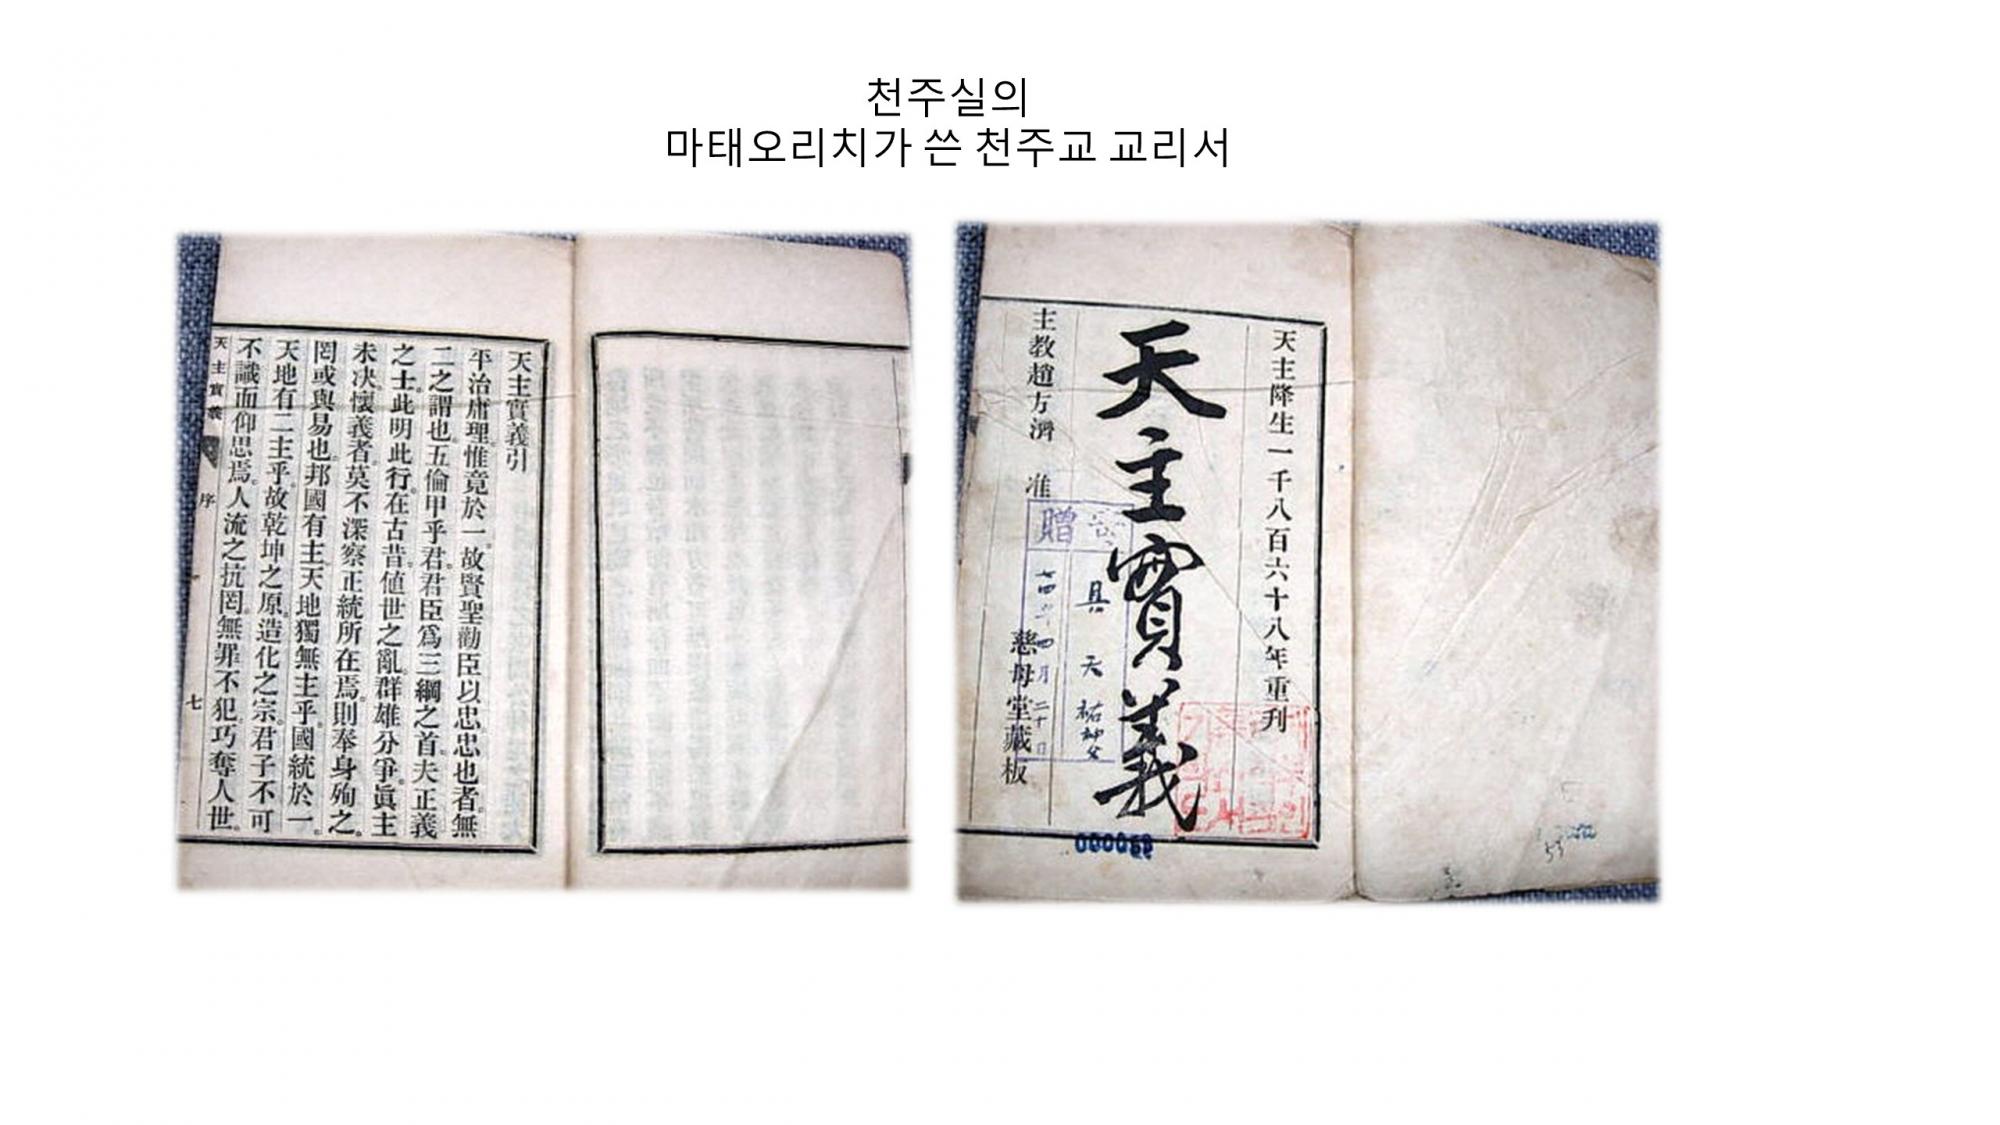 천주실의
마태오리치가 쓴 천주교 교리서
天主實義引
平治庸理。惟竟於一。故賢聖勸臣以忠。忠也者。無
二之謂也。五倫甲乎君。君臣爲三綱之首。夫正義
之士。此明此行。在古昔。値世之亂。群雄分爭。眞主
未决。懷義者。莫不深察正統所在焉。則奉身殉之。
罔或與易也。邦國有主。天地獨無主乎。國統於一。
天地有二主乎。故乾坤之原。造化之宗。君子不可
不識而仰思焉。人流之抗罔。無罪不犯。巧奪人世。
天主實義
序
七
天主降生一千八百六十八年重刊
天主實義
主教趙方濟 准
慈母堂藏板
贈
具 天 祐 神父
四月二十日
000053
53